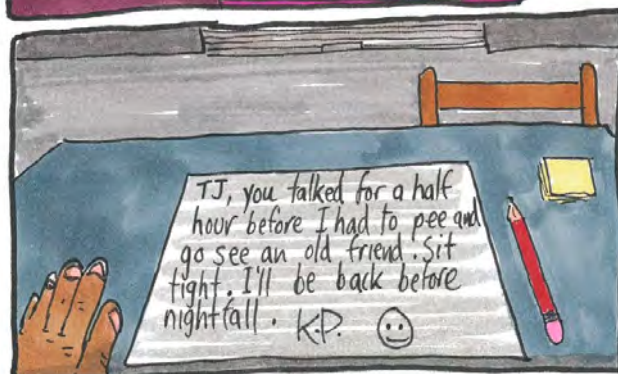 TJ, you talked for a half
hour before I had to pee and
go see an old friend. Sit
tight. I'll be back before
nightfall. K.P.